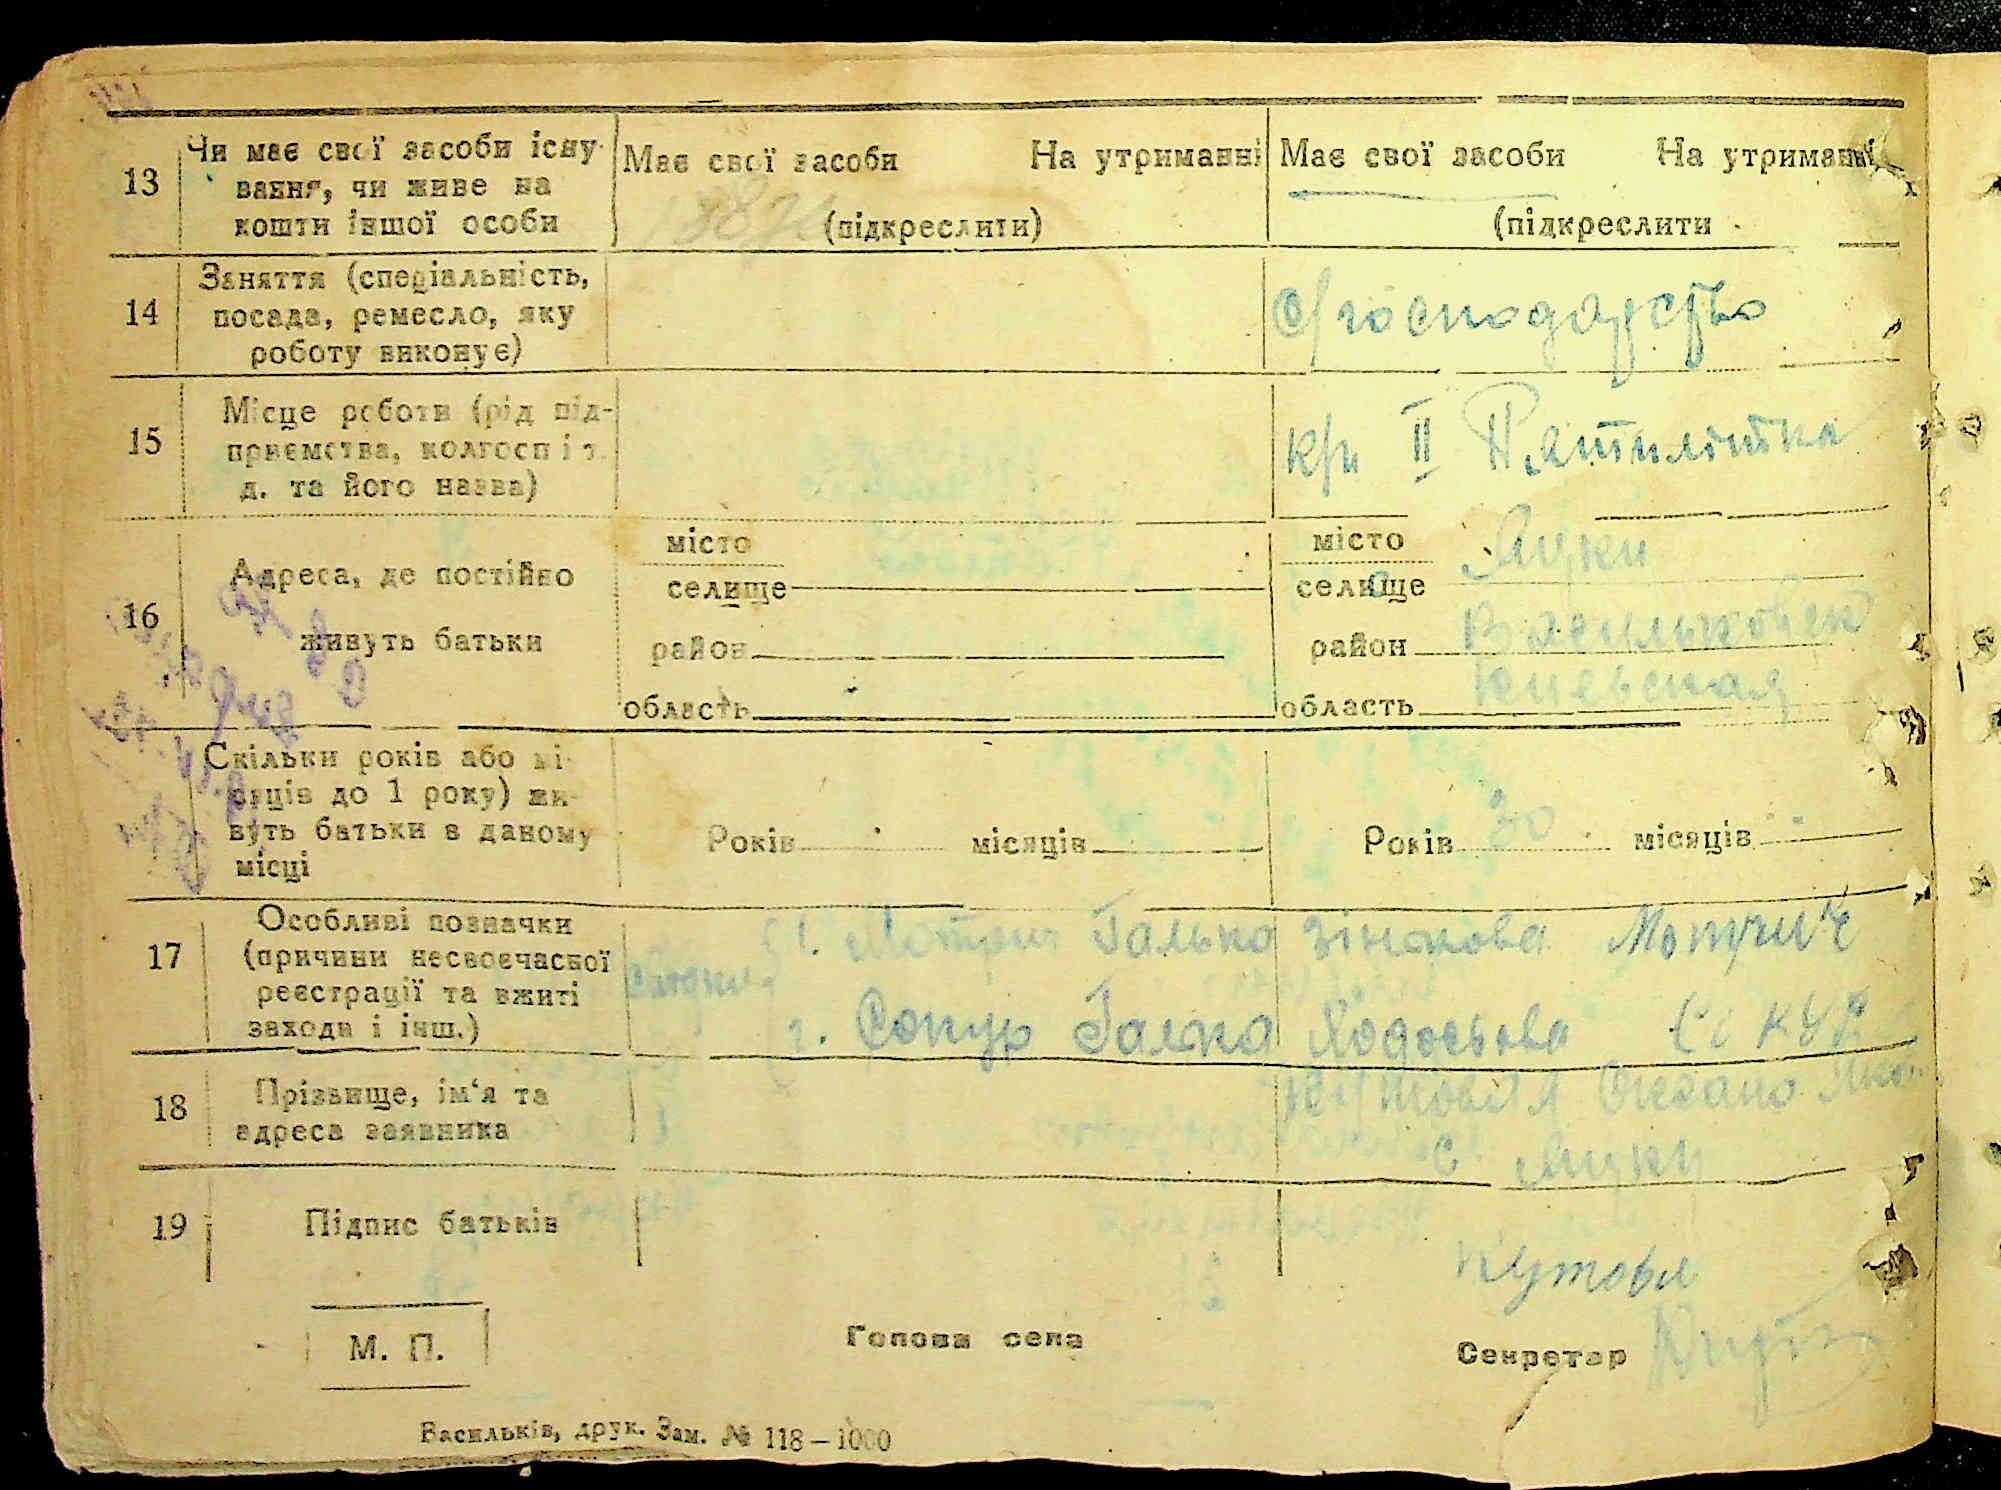 13 Чи має свої засоби існу-
вання, чи живе на
кошти іншої особи
Має свої засоби На утриманні
(підкреслити)
Має свої засоби На утриманні
(підкреслити
14 Заняття (спеціальність,
посада, ремесло, яку
роботу виконує)
с/господарство
15 Місце роботи (рід під-
приємства, колгосп і т.
д. та його назва)
к/г II Пятилітка
16 Адреса, де постійно
живуть батьки
місто
селище
район
область
місто
селище Луки
район Васильковск
область Киевская
Скільки років або мі-
сяців до 1 року) жи-
вуть батьки в даному
місці
Років місяців
Років 30 місяців
17 Особливі позначки
(причини несвоєчасної
реєстрації та вжиті
заходи і інш.)
1. Галька Зінькова
2. Сокур Галка Ходосьова Сокур
18 Прізвище, ім‘я та
адреса заявника
Кутовая Оксана
с Луки
19 Підпис батьків
Кутова
М. П.
Голова села
Секретар
Васильків, друк. Зам. № 118–1000